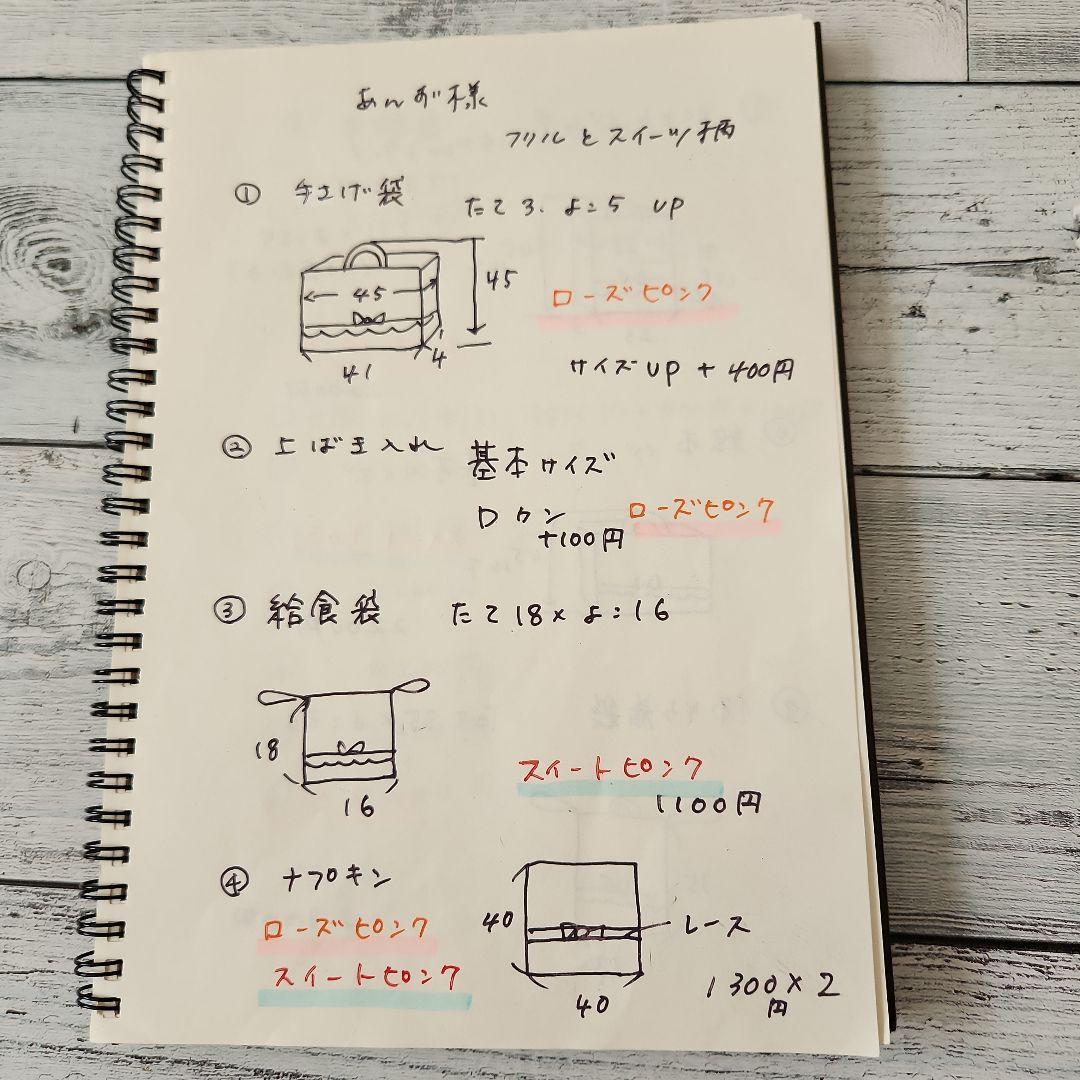 あんず様
フリルとスイーツ柄
① 手さげ袋 たて3. よこ5 UP
45
45
ローズピンク
4
41
サイズUP + 400円
② 上ばき入れ 基本サイズ
Dカン ローズピンク
+100円
③ 給食袋 たて18×よこ16
18
スイートピンク
16
1100円
④ ナフキン
40
レース
ローズピンク
スイートピンク
1300×2
円
40